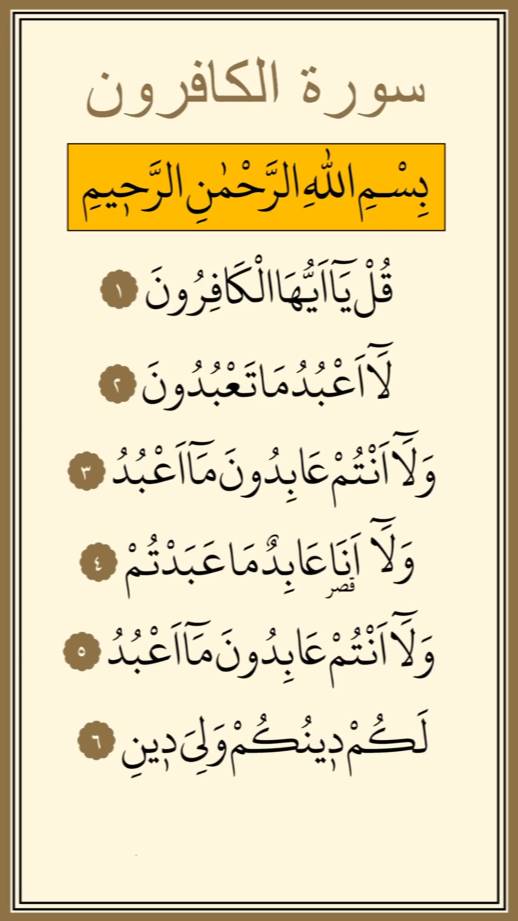 سورة الكافرون
بِسْمِ اللّٰهِ الرَّحْمٰنِ الرَّح۪يمِ
قُلْ يَٓا اَيُّهَا الْكَافِرُونَ ١
لَٓا اَعْبُدُ مَا تَعْبُدُونَ ٢
وَلَٓا اَنْتُمْ عَابِدُونَ مَٓا اَعْبُدُ ٣
وَلَٓا اَنَا عَابِدٌ مَا عَبَدْتُمْ ٤
قصر
وَلَٓا اَنْتُمْ عَابِدُونَ مَٓا اَعْبُدُ ٥
لَكُمْ د۪ينُكُمْ وَلِيَ د۪ينِ ٦